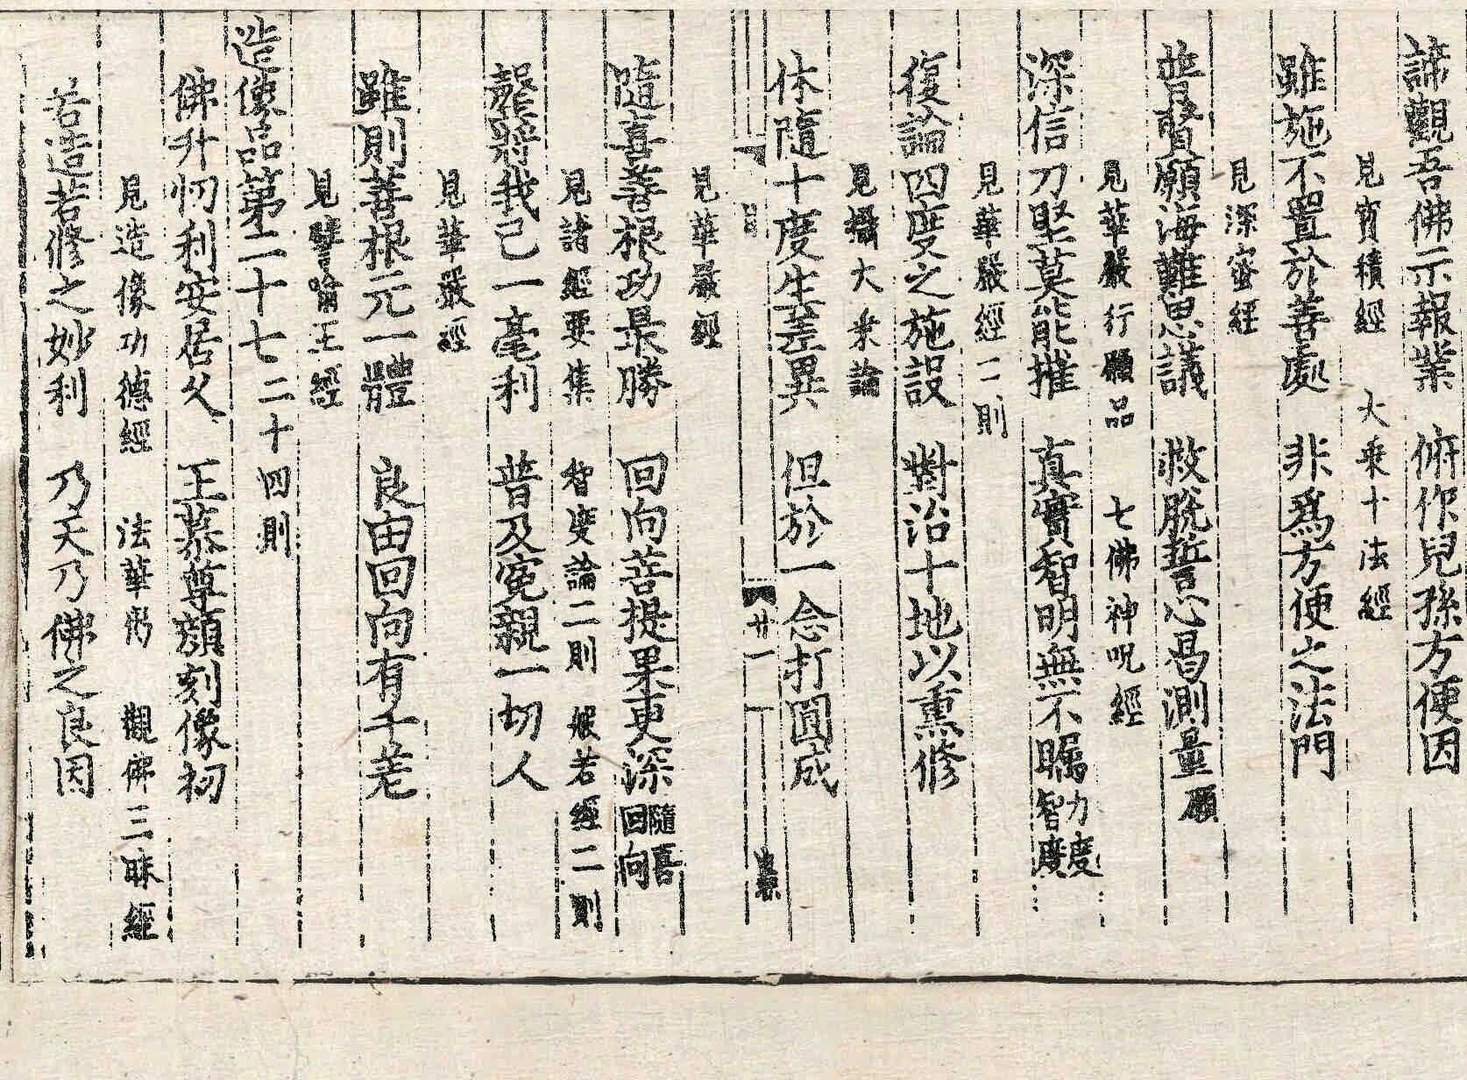 諦觀吾佛示報業　俯作兒孫方便因
見寶積經　大乘十法經
雖施不置於善處　非爲方便之法門
見深密經
普賢願海難思議　救脫誓心曷測量願
見華嚴行願品　七佛神呪經
深信刀堅莫能摧　真實智明無不矚力度智度
見華嚴經二則
復論四度之施設　對治十地以熏修
見攝大乘論
休隨十度生差異　但於一念打圓成
廿一
見華嚴經
隨喜善根功最勝　回向菩提果更深隨喜回向
見諸經要集　智度論二則　般若經二則
能將我己一毫利　普及寃親一切人
見華嚴經
雖則善根元一體　良由回向有千差
見譬喻王經
造像品第二十七二十四則
佛升忉利安居久　王慕尊顏刻像初
見造像功德經　法華　觀佛三昧經
若造若修之妙利　乃天乃佛之良因